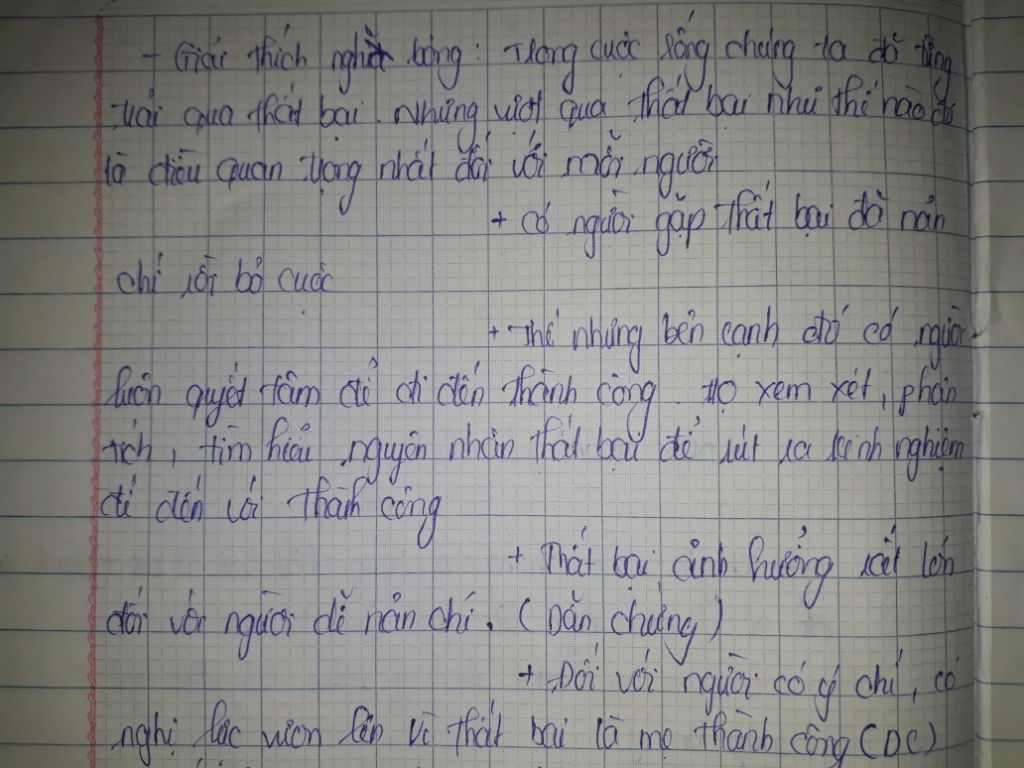 - Giải thích nghĩa bóng: Trong cuộc sống chúng ta đã từng
trải qua thất bại. Nhưng vượt qua thất bại như thế nào đó
là điều quan trọng nhất đối với mỗi người
+ có người gặp thất bại đã nản
chí rồi bỏ cuộc
+ Thế nhưng bên cạnh đó có người
luôn quyết tâm để đi đến thành công. Họ xem xét, phân
tích, tìm hiểu nguyên nhân thất bại để rút ra kinh nghiệm
để đến với thành công
+ Thất bại ảnh hưởng rất lớn
đối với người dễ nản chí. (Dẫn chứng)
+ Đối với người có ý chí, có
nghị lực vươn lên vì thất bại là mẹ thành công (DC)